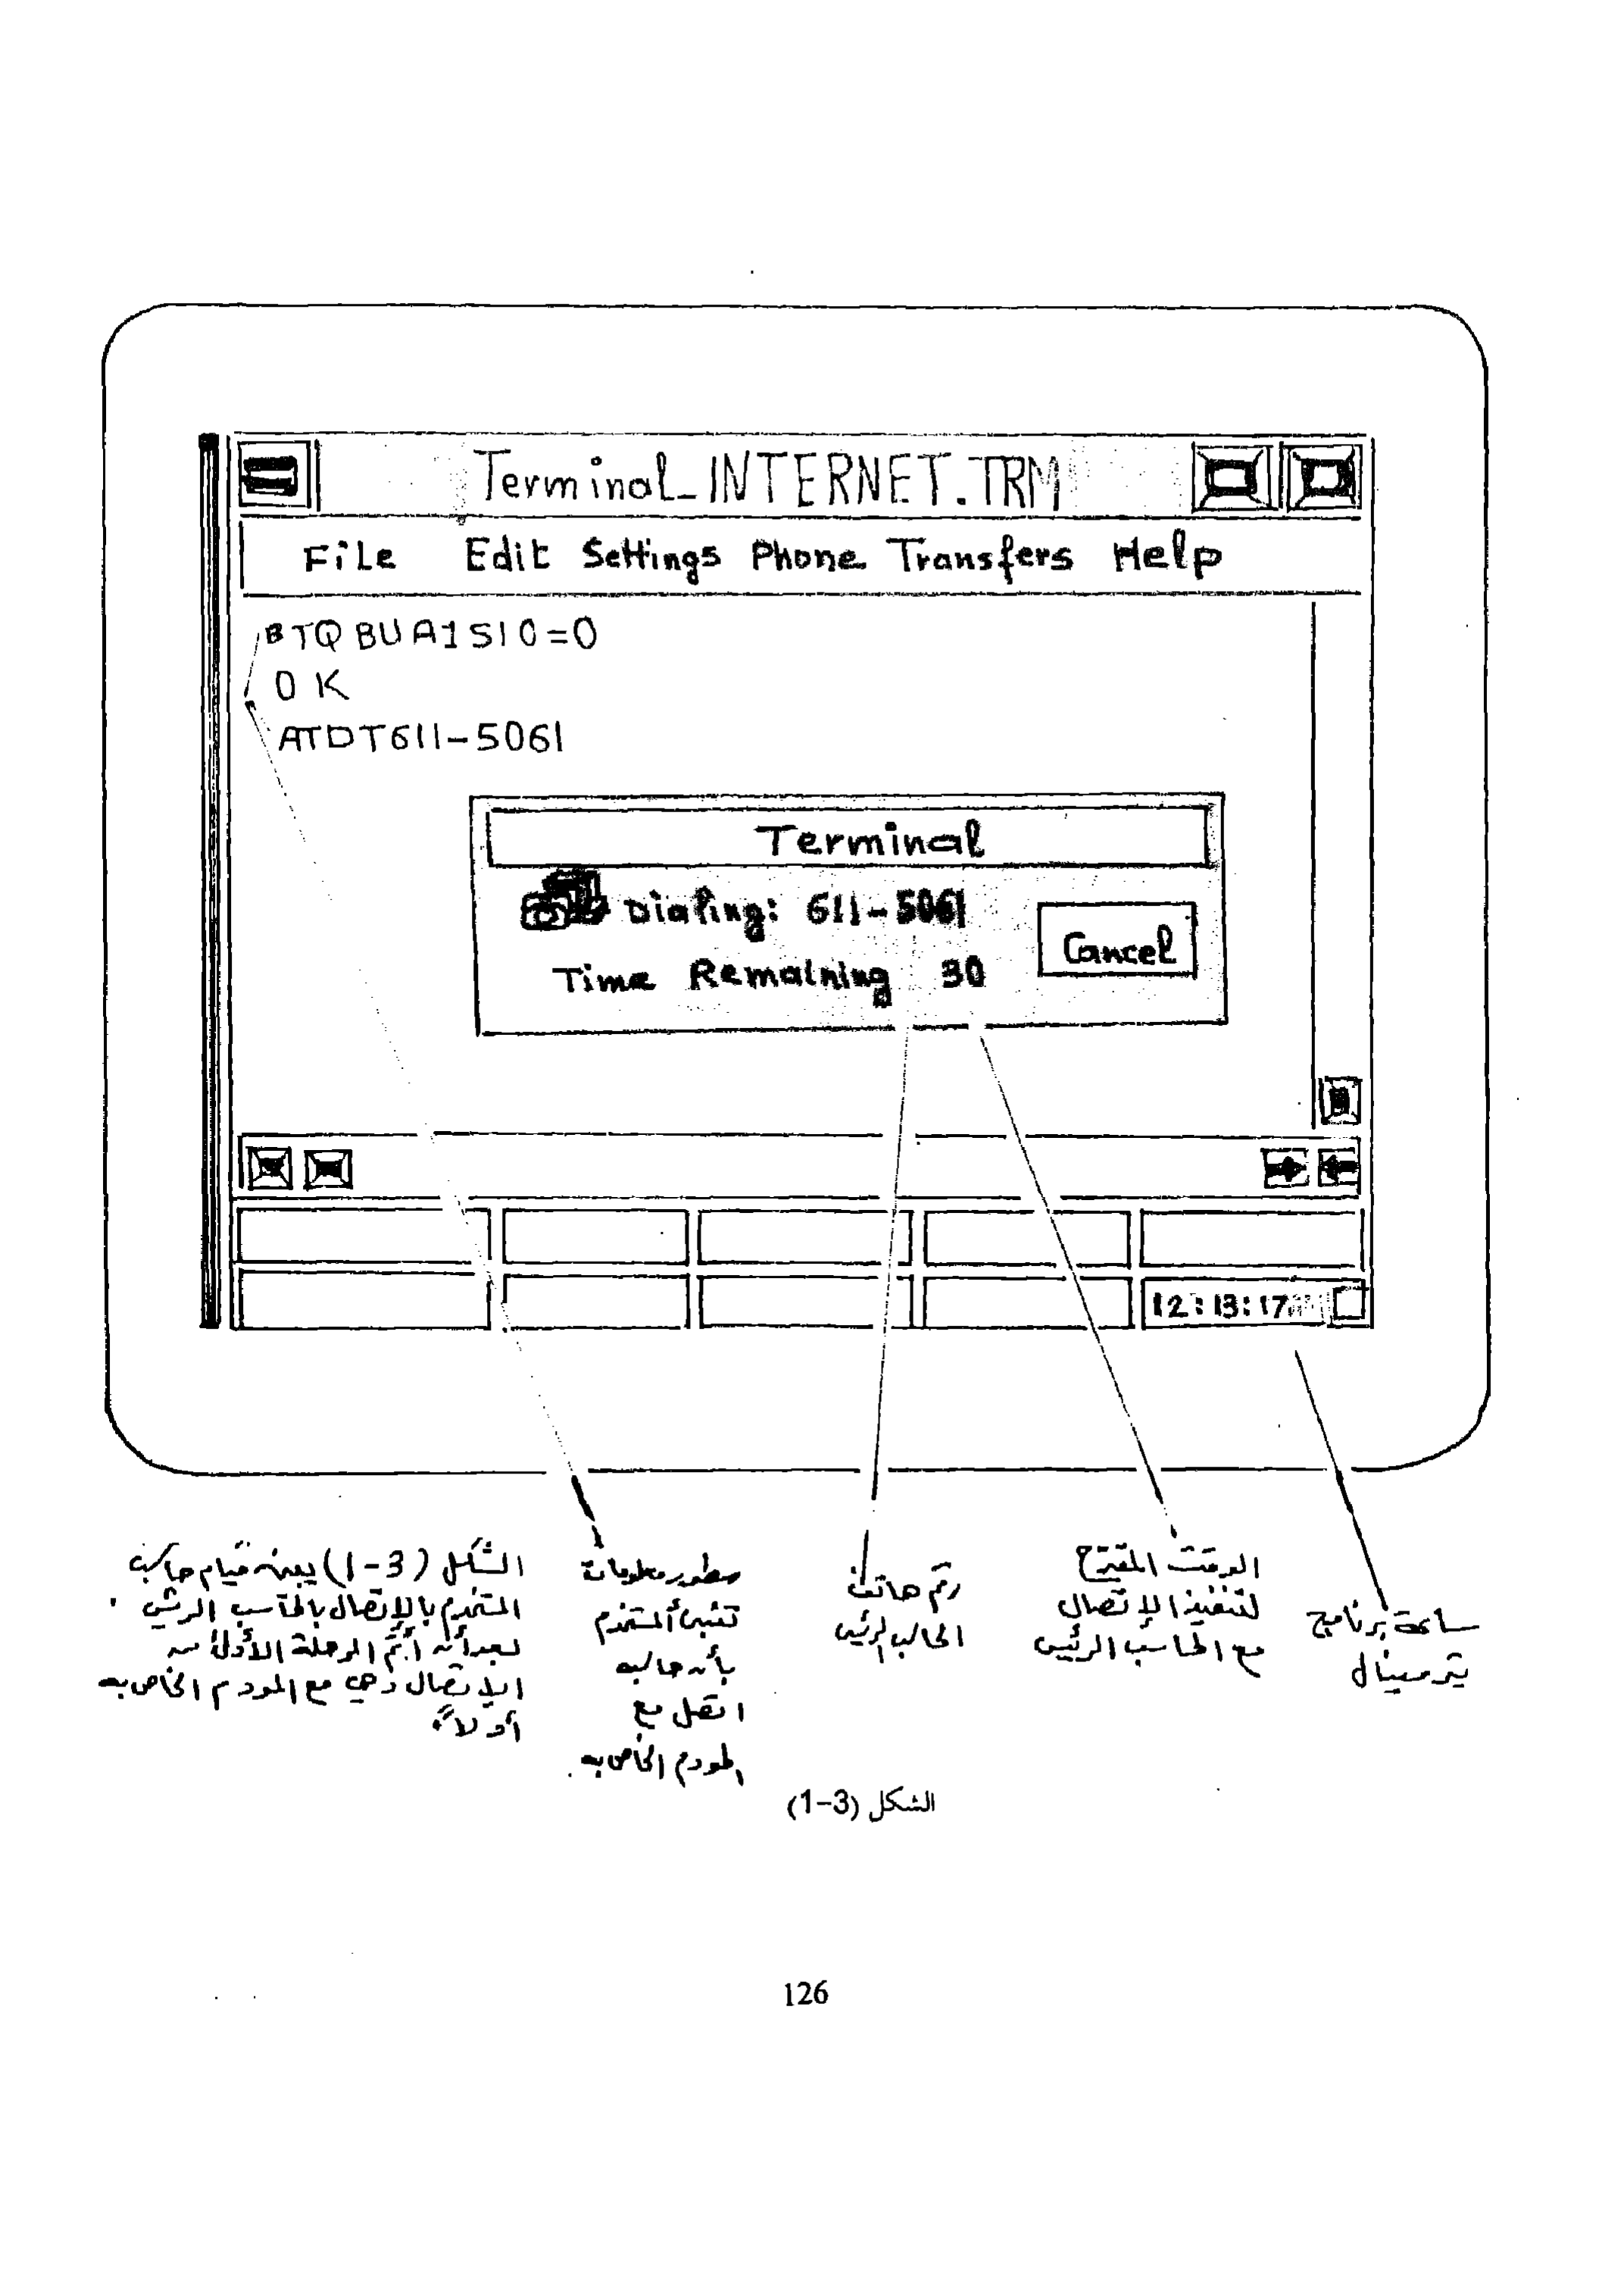 Terminal_INTERNET.TRM
File Edit Settings Phone Transfers Help
BTQBUA1S10=0
OK
ATDT611-5061
Terminal
Dialing: 611-5061
Cancel
Time Remaining 30
12:13:17
ساعة برنامج
يترمينال
الوقت المقترح
لتنفيذ الإتصال
مع الحاسب الرئيس
رقم هاتف
الحاسب الرئيس
سطور معلومات
تنبئ المستخدم
بأن حاسبه
اتصل مع
المودم الخاص به.
الشكل (3-1) يبين قيام حاسب
المستخدم بالإتصال بالحاسب الرئيس
بعد أن أتم المرحلة الأولى من
الإتصال وهي مع المودم الخاص به
أولاً.
الشكل (3-1)
126